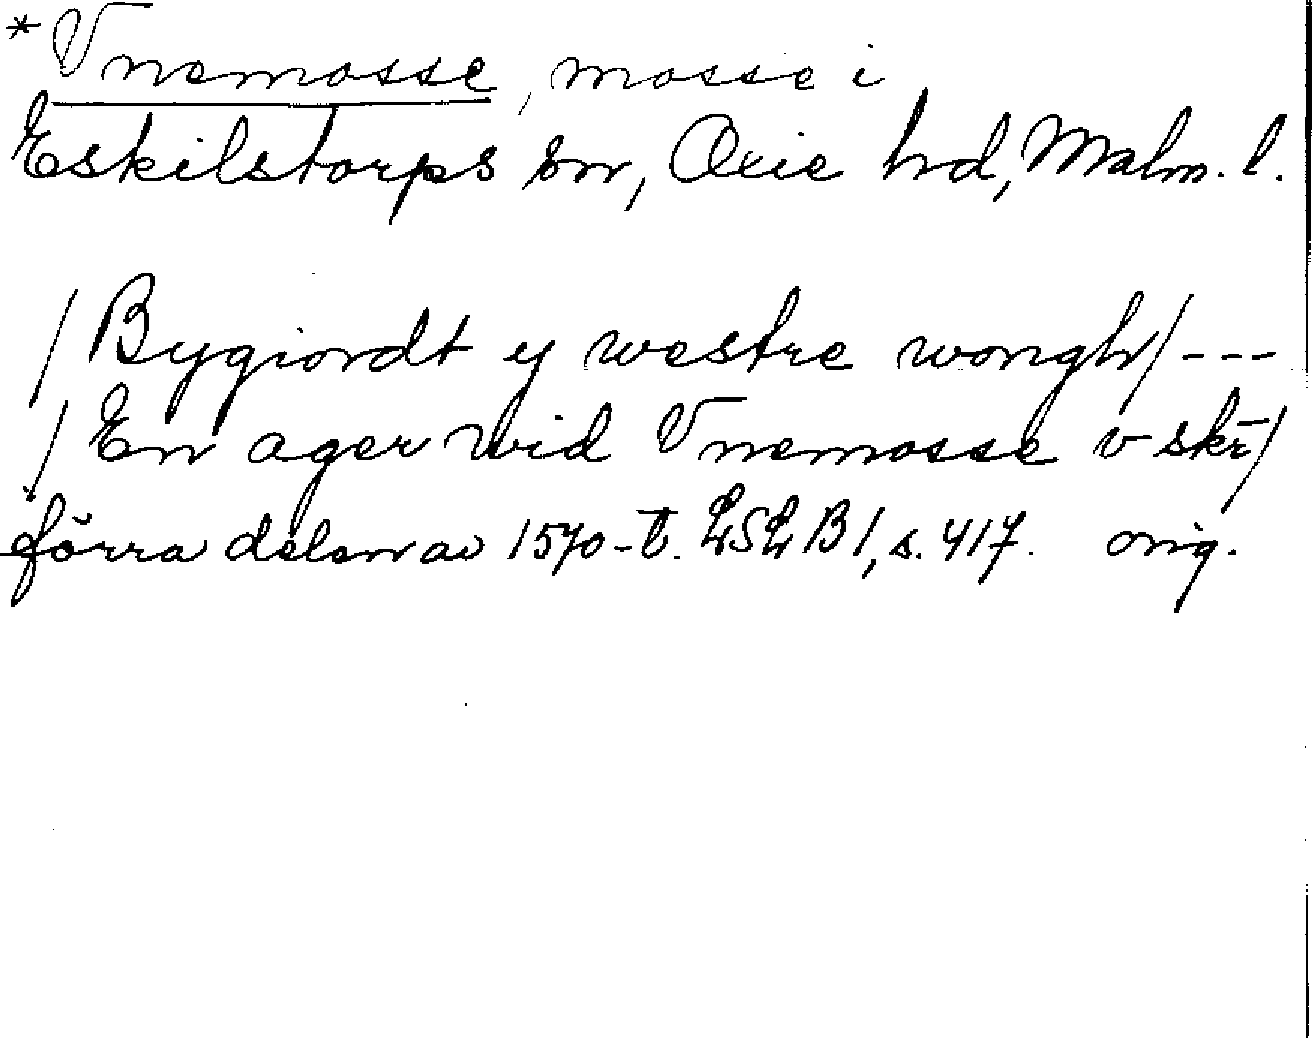 *Vnemosse, mosse i
Eskilstorps sn, Oxie hd, Malm. l.
/Bygiordt y westre wongh/ ---
/En ager wid Vnemosse v skr/
förra delen av 1570-t. LSLB1, s. 417. orig.